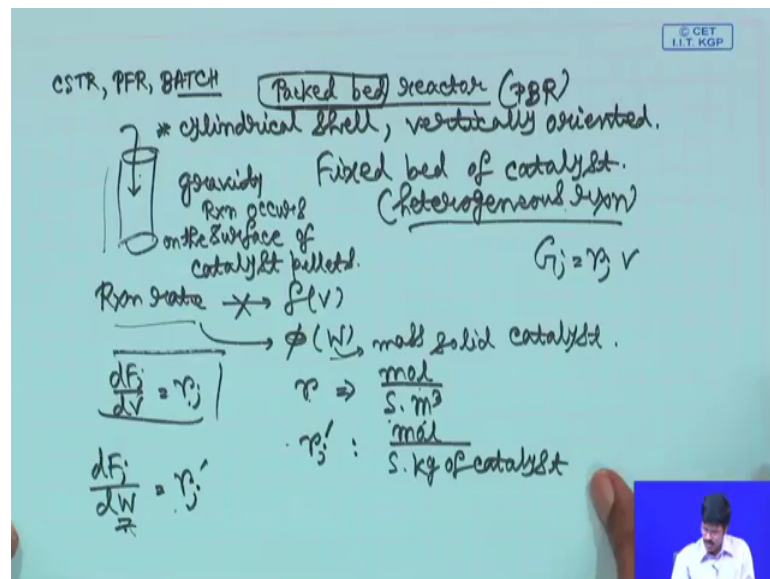 © CET
I.I.T. KGP
CSTR, PFR, BATCH Packed bed reactor (PBR)
* cylindrical shell, vertically oriented.
gravity
Fixed bed of catalyst.
(heterogeneous rxn)
Rxn occurs
on the surface of
catalyst pellets.
Gj = rj V
Rxn rate ↛ f(V)
→ ϕ(W) → mass solid catalyst.
dFj/dV = rj
r ⇒ mol/s.m³
rj' : mol/s.kg of catalyst
dFj/dW = rj'